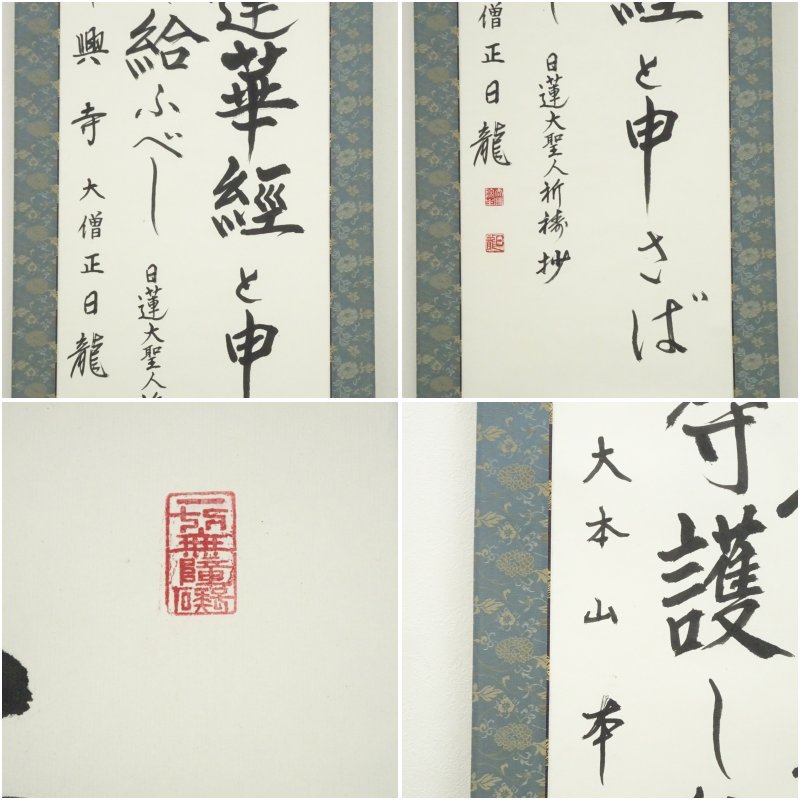 蓮華經と申
給ふべし
日蓮大聖人
興寺 大僧正日龍
經と申さば
日蓮大聖人祈祷抄
僧正日龍
日龍
一切無障礙
守護し
大本山本